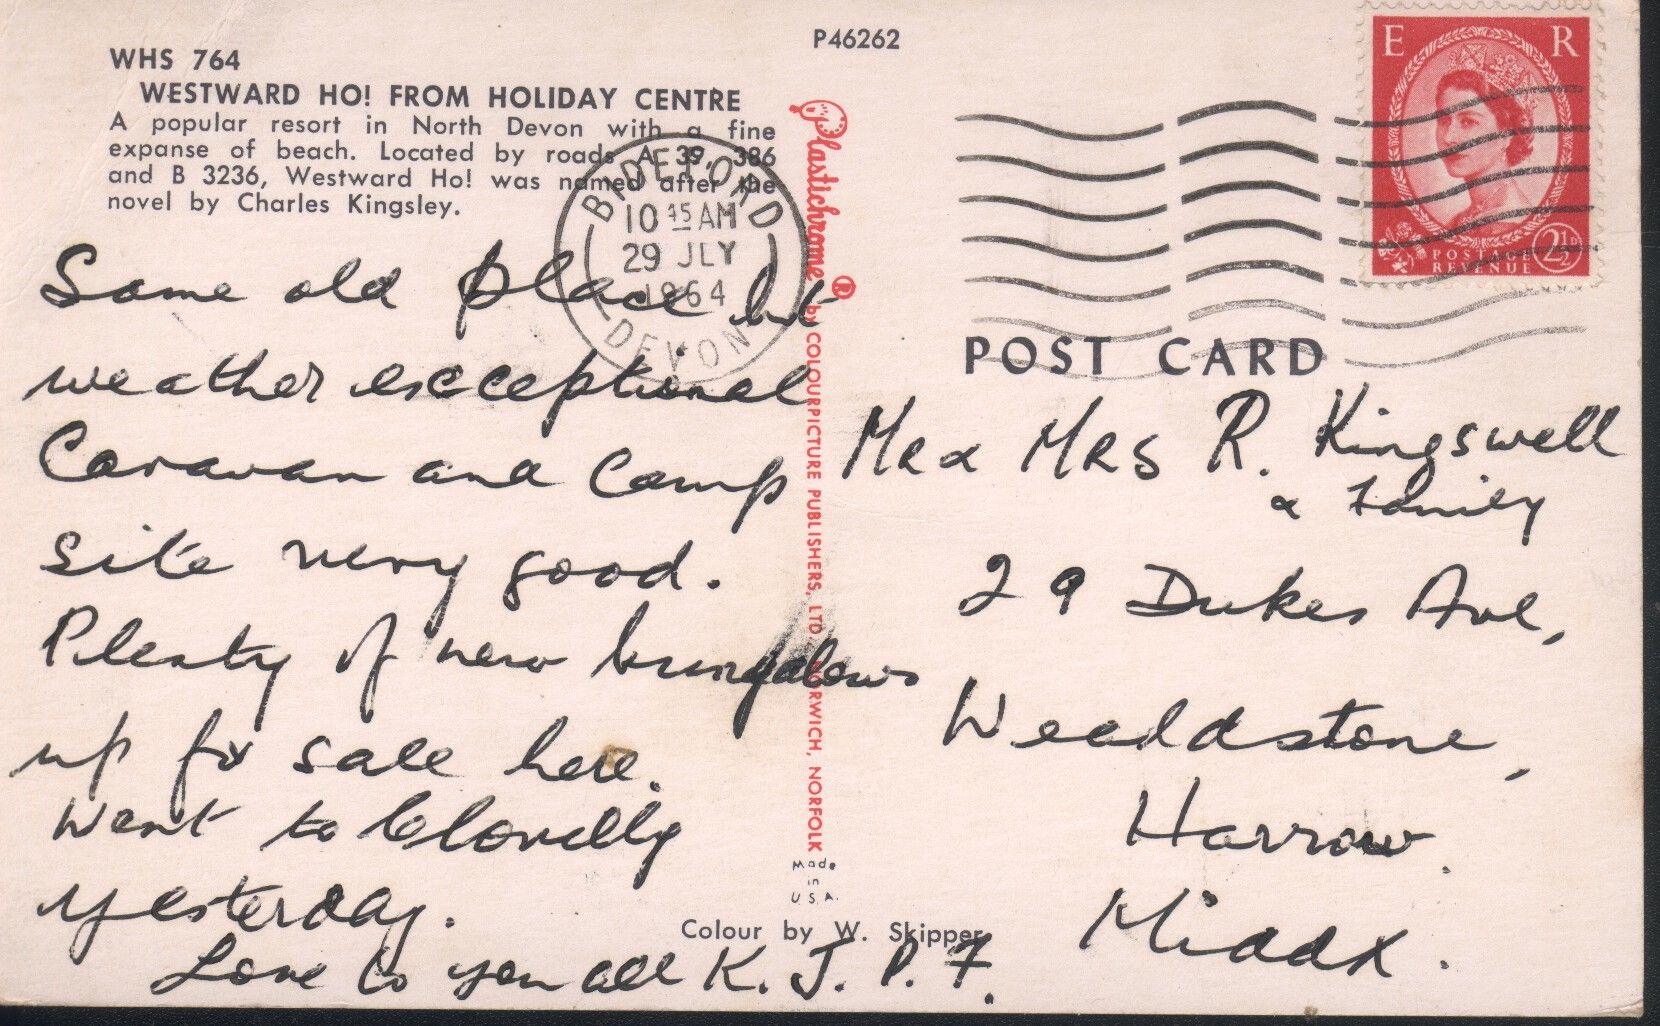 WHS 764
WESTWARD HO! FROM HOLIDAY CENTRE
A popular resort in North Devon with a fine
expanse of beach. Located by roads A 39, 386
and B 3236, Westward Ho! was named after the
novel by Charles Kingsley.
Same old place but
weather exceptional
Caravan and Camp
site very good.
Plenty of new bungalows
up for sale here.
Went to Clovelly
yesterday.
Love to you all K. J. P. F.
BIDEFORD
10 45 AM
29 JLY
1964
DEVON
Plastichrome ® by COLOURPICTURE PUBLISHERS, LTD. NORWICH, NORFOLK
Made
in
U.S.A.
Colour by W. Skipper
P46262
E R
POSTAGE
REVENUE
2½D
POST CARD
Mr & Mrs R. Kingswell
& Family
29 Dukes Ave,
Wealdstone,
Harrow.
Middx.